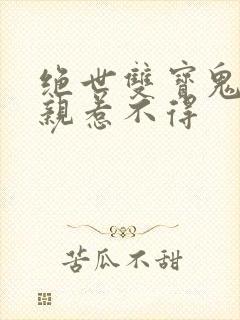 绝世雙寶鬼
親惹不得
苦瓜不甜